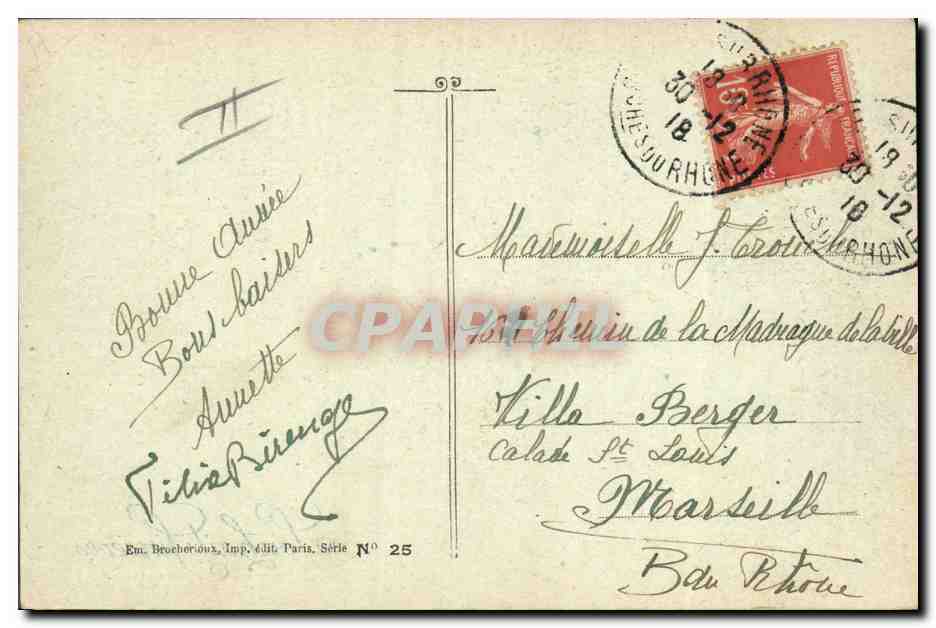 II
Bonne Année
Bons baisers
Annette
Félix Bérenger
Em. Brocherioux, Imp. édit. Paris, Série No 25
18 30
30 -12
18
BOUCHES DU RHONE
15c
REPUBLIQUE FRANÇAISE
POSTES
18 30
30 -12
18
DU RHONE
Mademoiselle J.
Chemin de la Madrague de la ville
Villa Berger
Calade St Louis
Marseille
B du Rhône
CPAPHIL